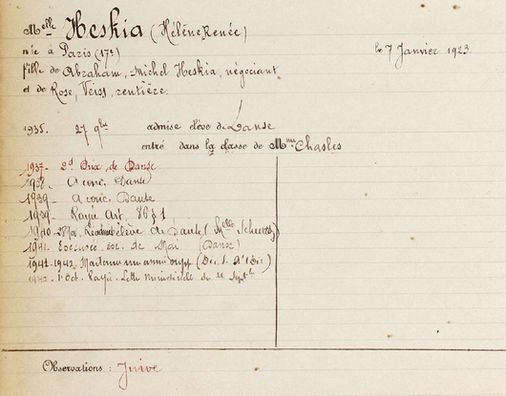 Melle Heskia (Hélène, Renée)
née à Paris (17e) le 7 Janvier 1923
fille de Abraham, Michel Heskia, négociant
et de Rose, Veiss, rentière.
1935. 27 9bre admise élève de Danse
entré dans la classe de Mme Chasles
1937 - 2d Prix de Danse
1938. A conc. Danse
1939 - A conc. Danse
1939 - Rayé Art. 76 § 1
1940 élève de Danse (Melle
1941. Excusée de Mai (Danse)
1941-1942 - (Déc.
1942. 1 Oct. Rayée. Lettre ministérielle de Septbre
Observations : Juive